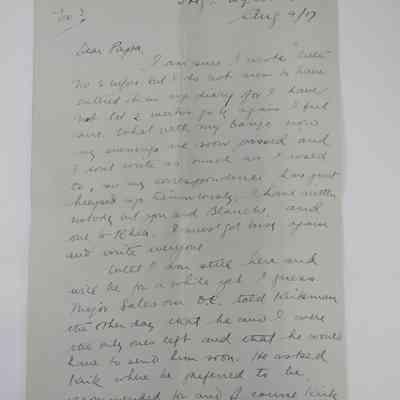 No 3
Aug 9/17
Dear Papa,
I am sure I wrote letter
No 2 before but I do not seem to have
entered it in my diary for I have
not let 2 weeks go by again I feel
sure. What with my banjo now
my evenings are soon passed and
I don't write as much as I used
to, so my correspondence has just
heaped up tremendously. I have written
nobody but you and Blanche, and
one to Rhea. I must get busy again
and write everyone.
Well I am still here and
will be for a while yet I guess.
Major Sales our O.C. told Kirkman
the other day that he and I were
the only ones left and that he would
have to send him soon. He asked
Kirk where he preferred to be
recommended for and of course Kirk